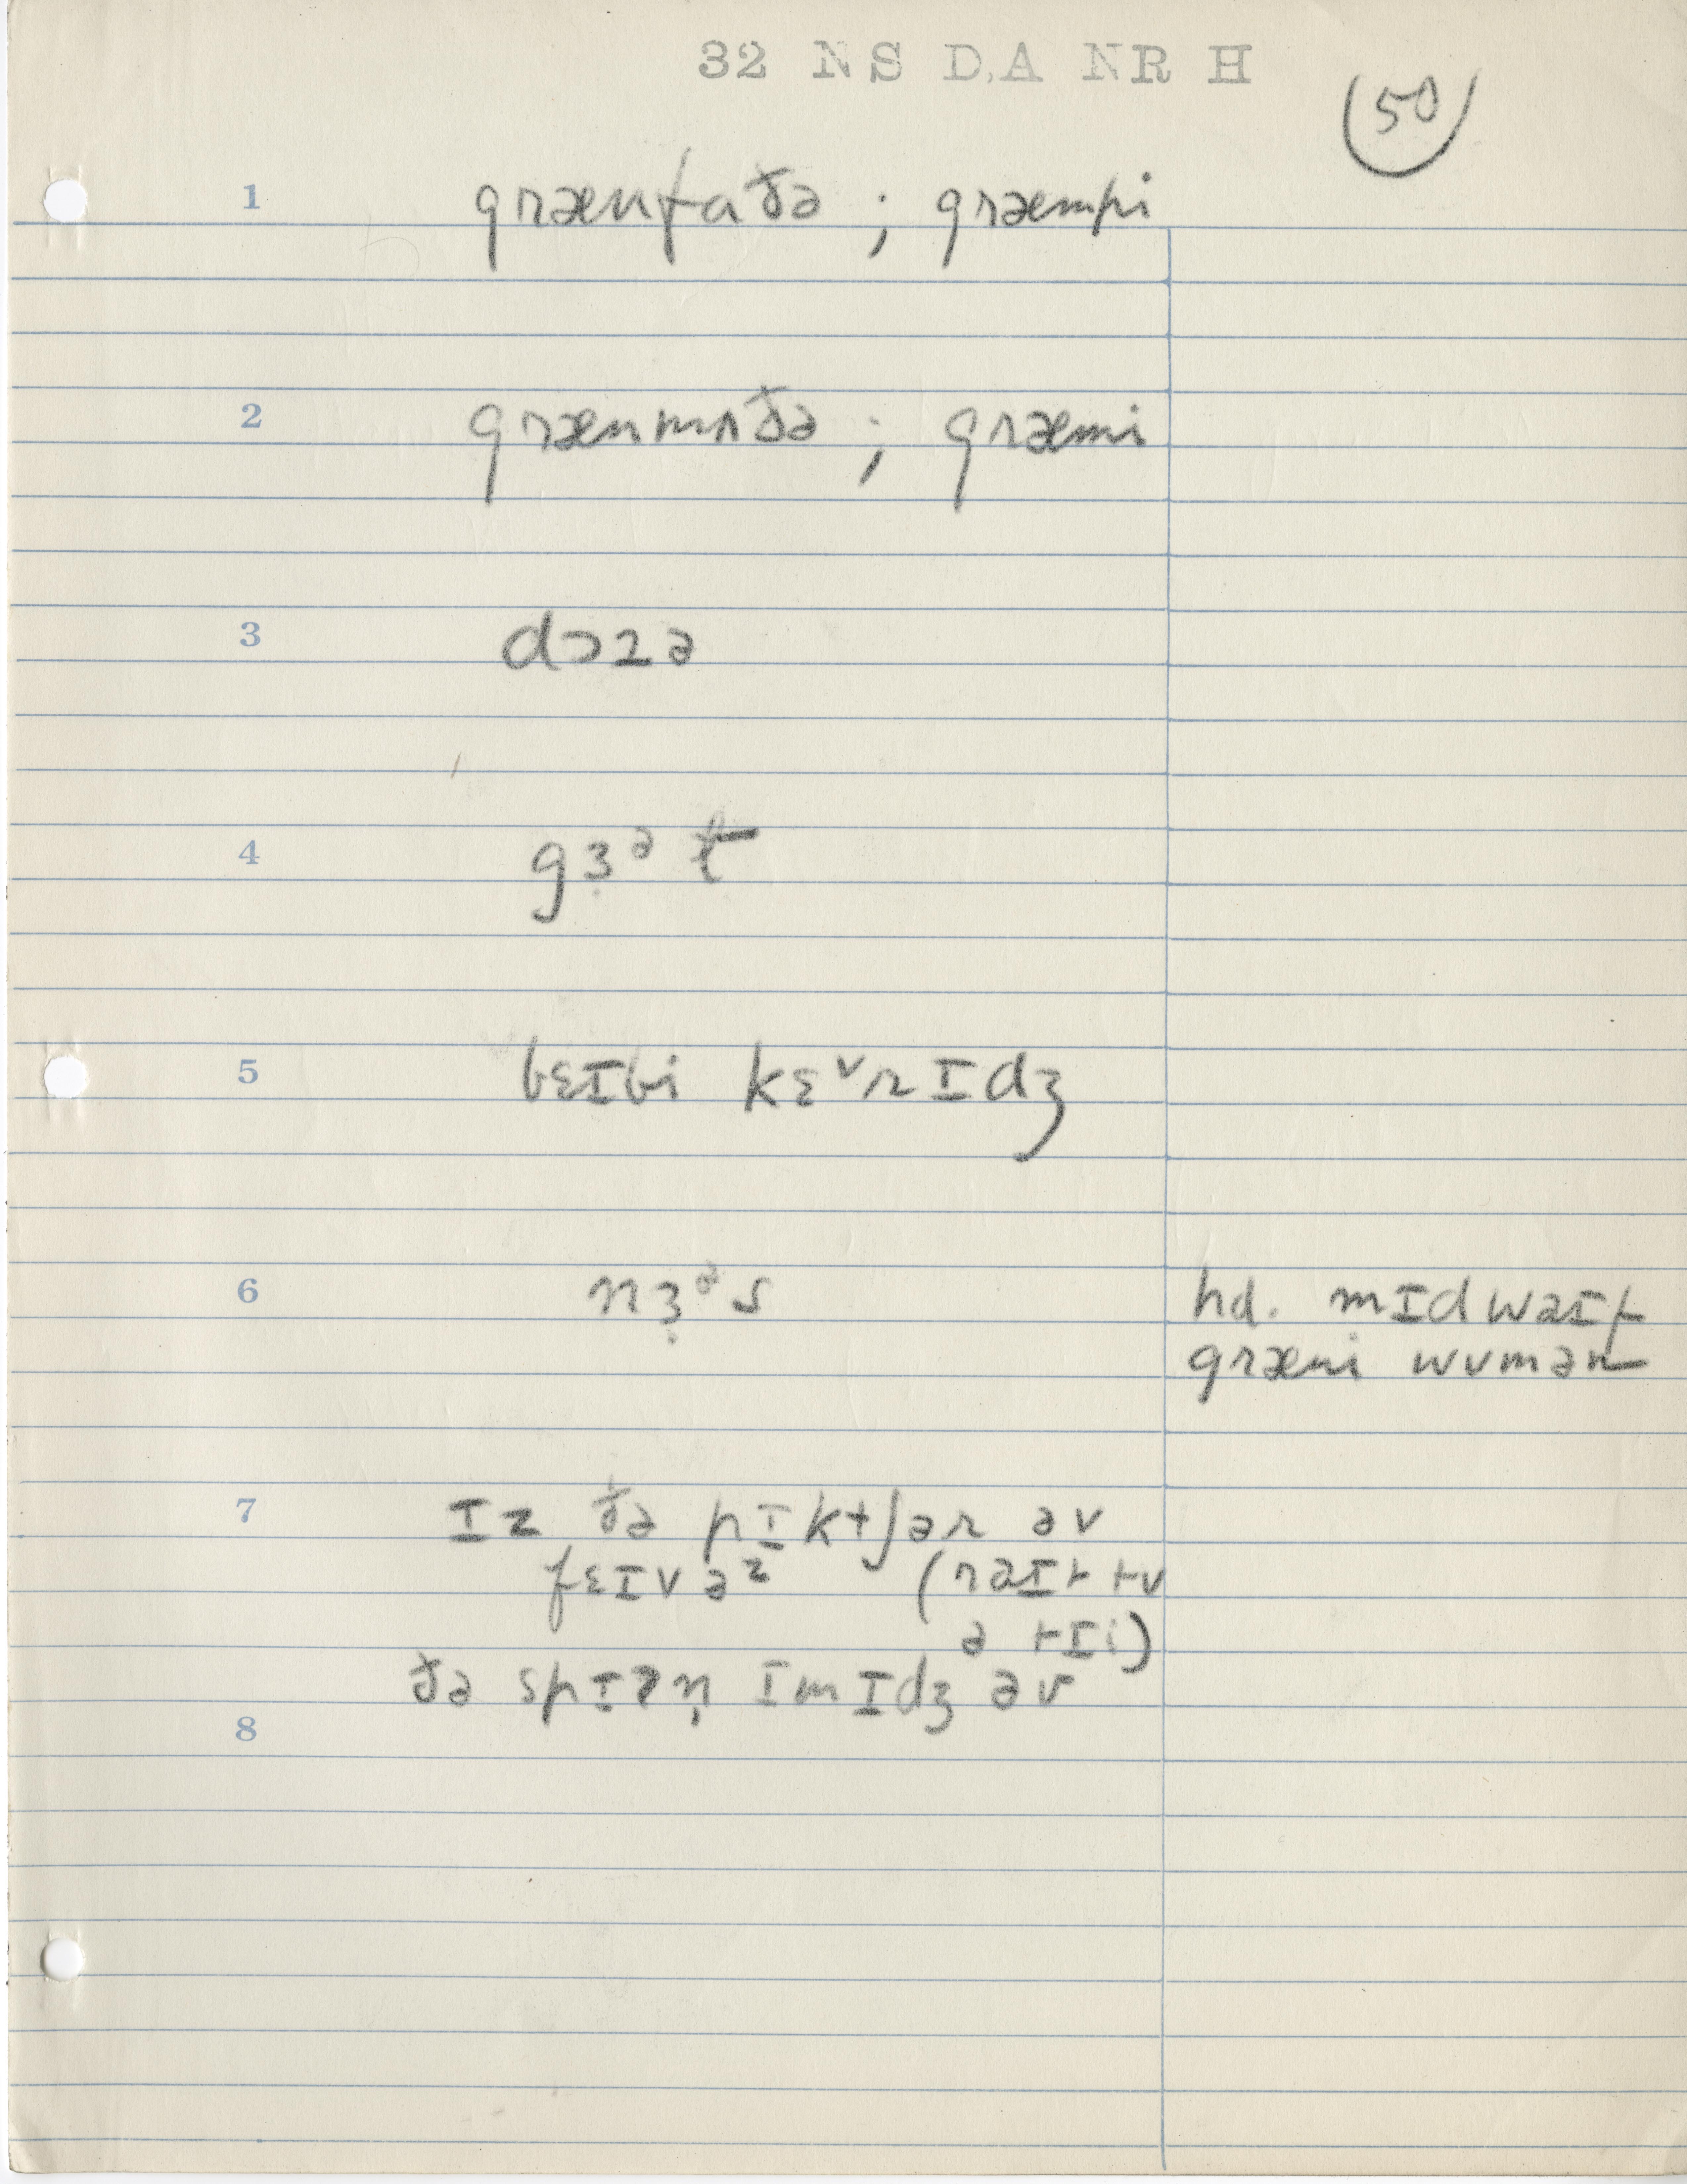 32 NS D,A NR H
50
1 grænfaðə ; græmpi
2 grænmʌðə ; græmi
3 dɔɹə
4 gɜ̣ᵊ t
5 bɛɪbi kɛ˅rɪdʒ
6 nɜ̣ᵊs hd. mɪdwəɪf
græni wʊmən
7 ɪz ðə pɪktʃər əv
fɛɪvəᶻ (rəɪt tʊ
ə tɪi)
ðə spɪʔn̩ ɪmɪdʒ əv
8